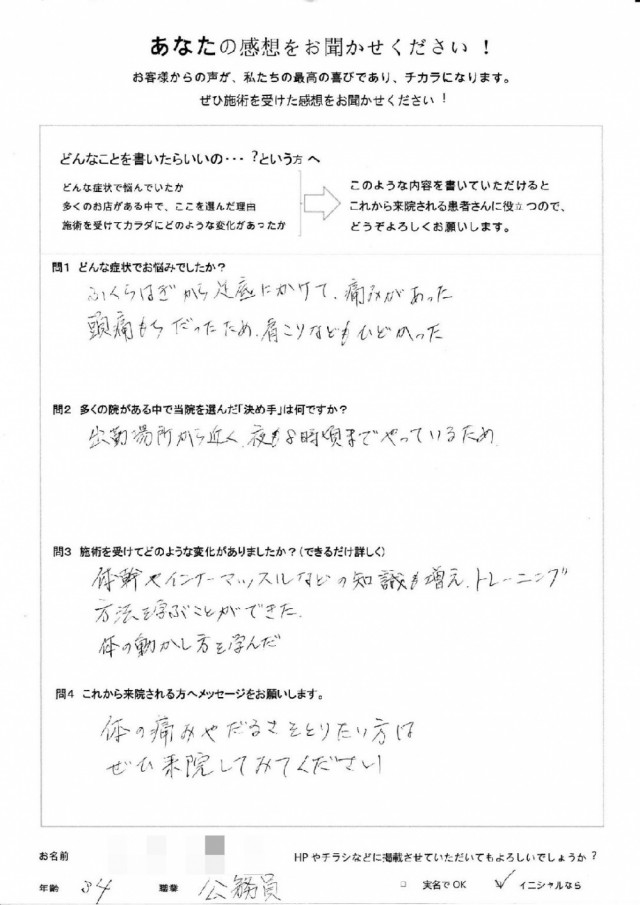 あなたの感想をお聞かせください！
お客様からの声が、私たちの最高の喜びであり、チカラになります。
ぜひ施術を受けた感想をお聞かせください！
どんなことを書いたらいいの・・・？という方へ
どんな症状で悩んでいたか
多くのお店がある中で、ここを選んだ理由
施術を受けてカラダにどのような変化があったか
このような内容を書いていただけると
これから来院される患者さんに役立つので、
どうぞよろしくお願いします。
問1 どんな症状でお悩みでしたか？
ふくらはぎから足底にかけて、痛みがあった
頭痛もちだったため、肩こりなどもひどかった
問2 多くの院がある中で当院を選んだ「決め手」は何ですか？
出勤場所から近く、夜も8時頃までやっているため
問3 施術を受けてどのような変化がありましたか？（できるだけ詳しく）
体幹やインナーマッスルなどの知識も増え、トレーニング
方法を学ぶことができた。
体の動かし方を学んだ
問4 これから来院される方へメッセージをお願いします。
体の痛みやだるさをとりたい方は
ぜひ来院してみてください！
お名前
HPやチラシなどに掲載させていただいてもよろしいでしょうか？
年齢 34 職業 公務員 □ 実名でOK ✓ イニシャルなら